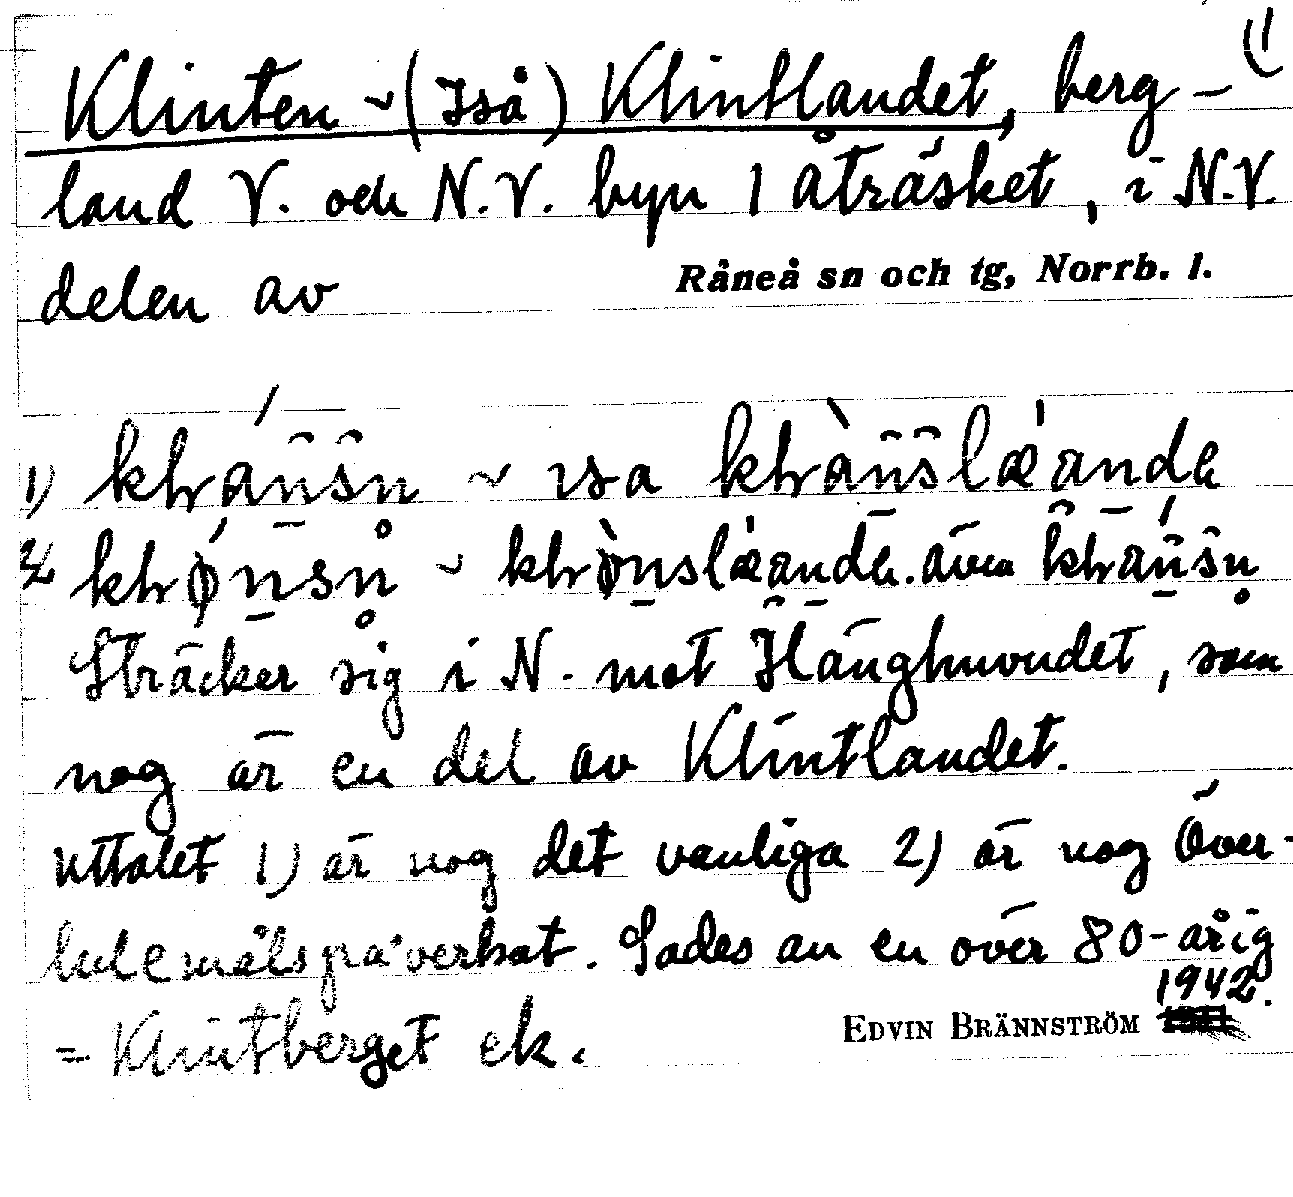 Klinten ~ (Iså) Klintlandet, berg-
land V. och N.V. byn 1 Åträsket, i N.V.
delen av Råneå sn och tg, Norrb. l.
1) ~ ısa
2) ~ även
Sträcker sig i N. mot Hänghuvudet, som
nog är en del av Klintlandet.
Uttalet 1) är nog det vanliga 2) är nog Över-
lulemålspåverkat. Sades av en över 80-årig
= Klintberget ek. EDVIN BRÄNNSTRÖM 1942.